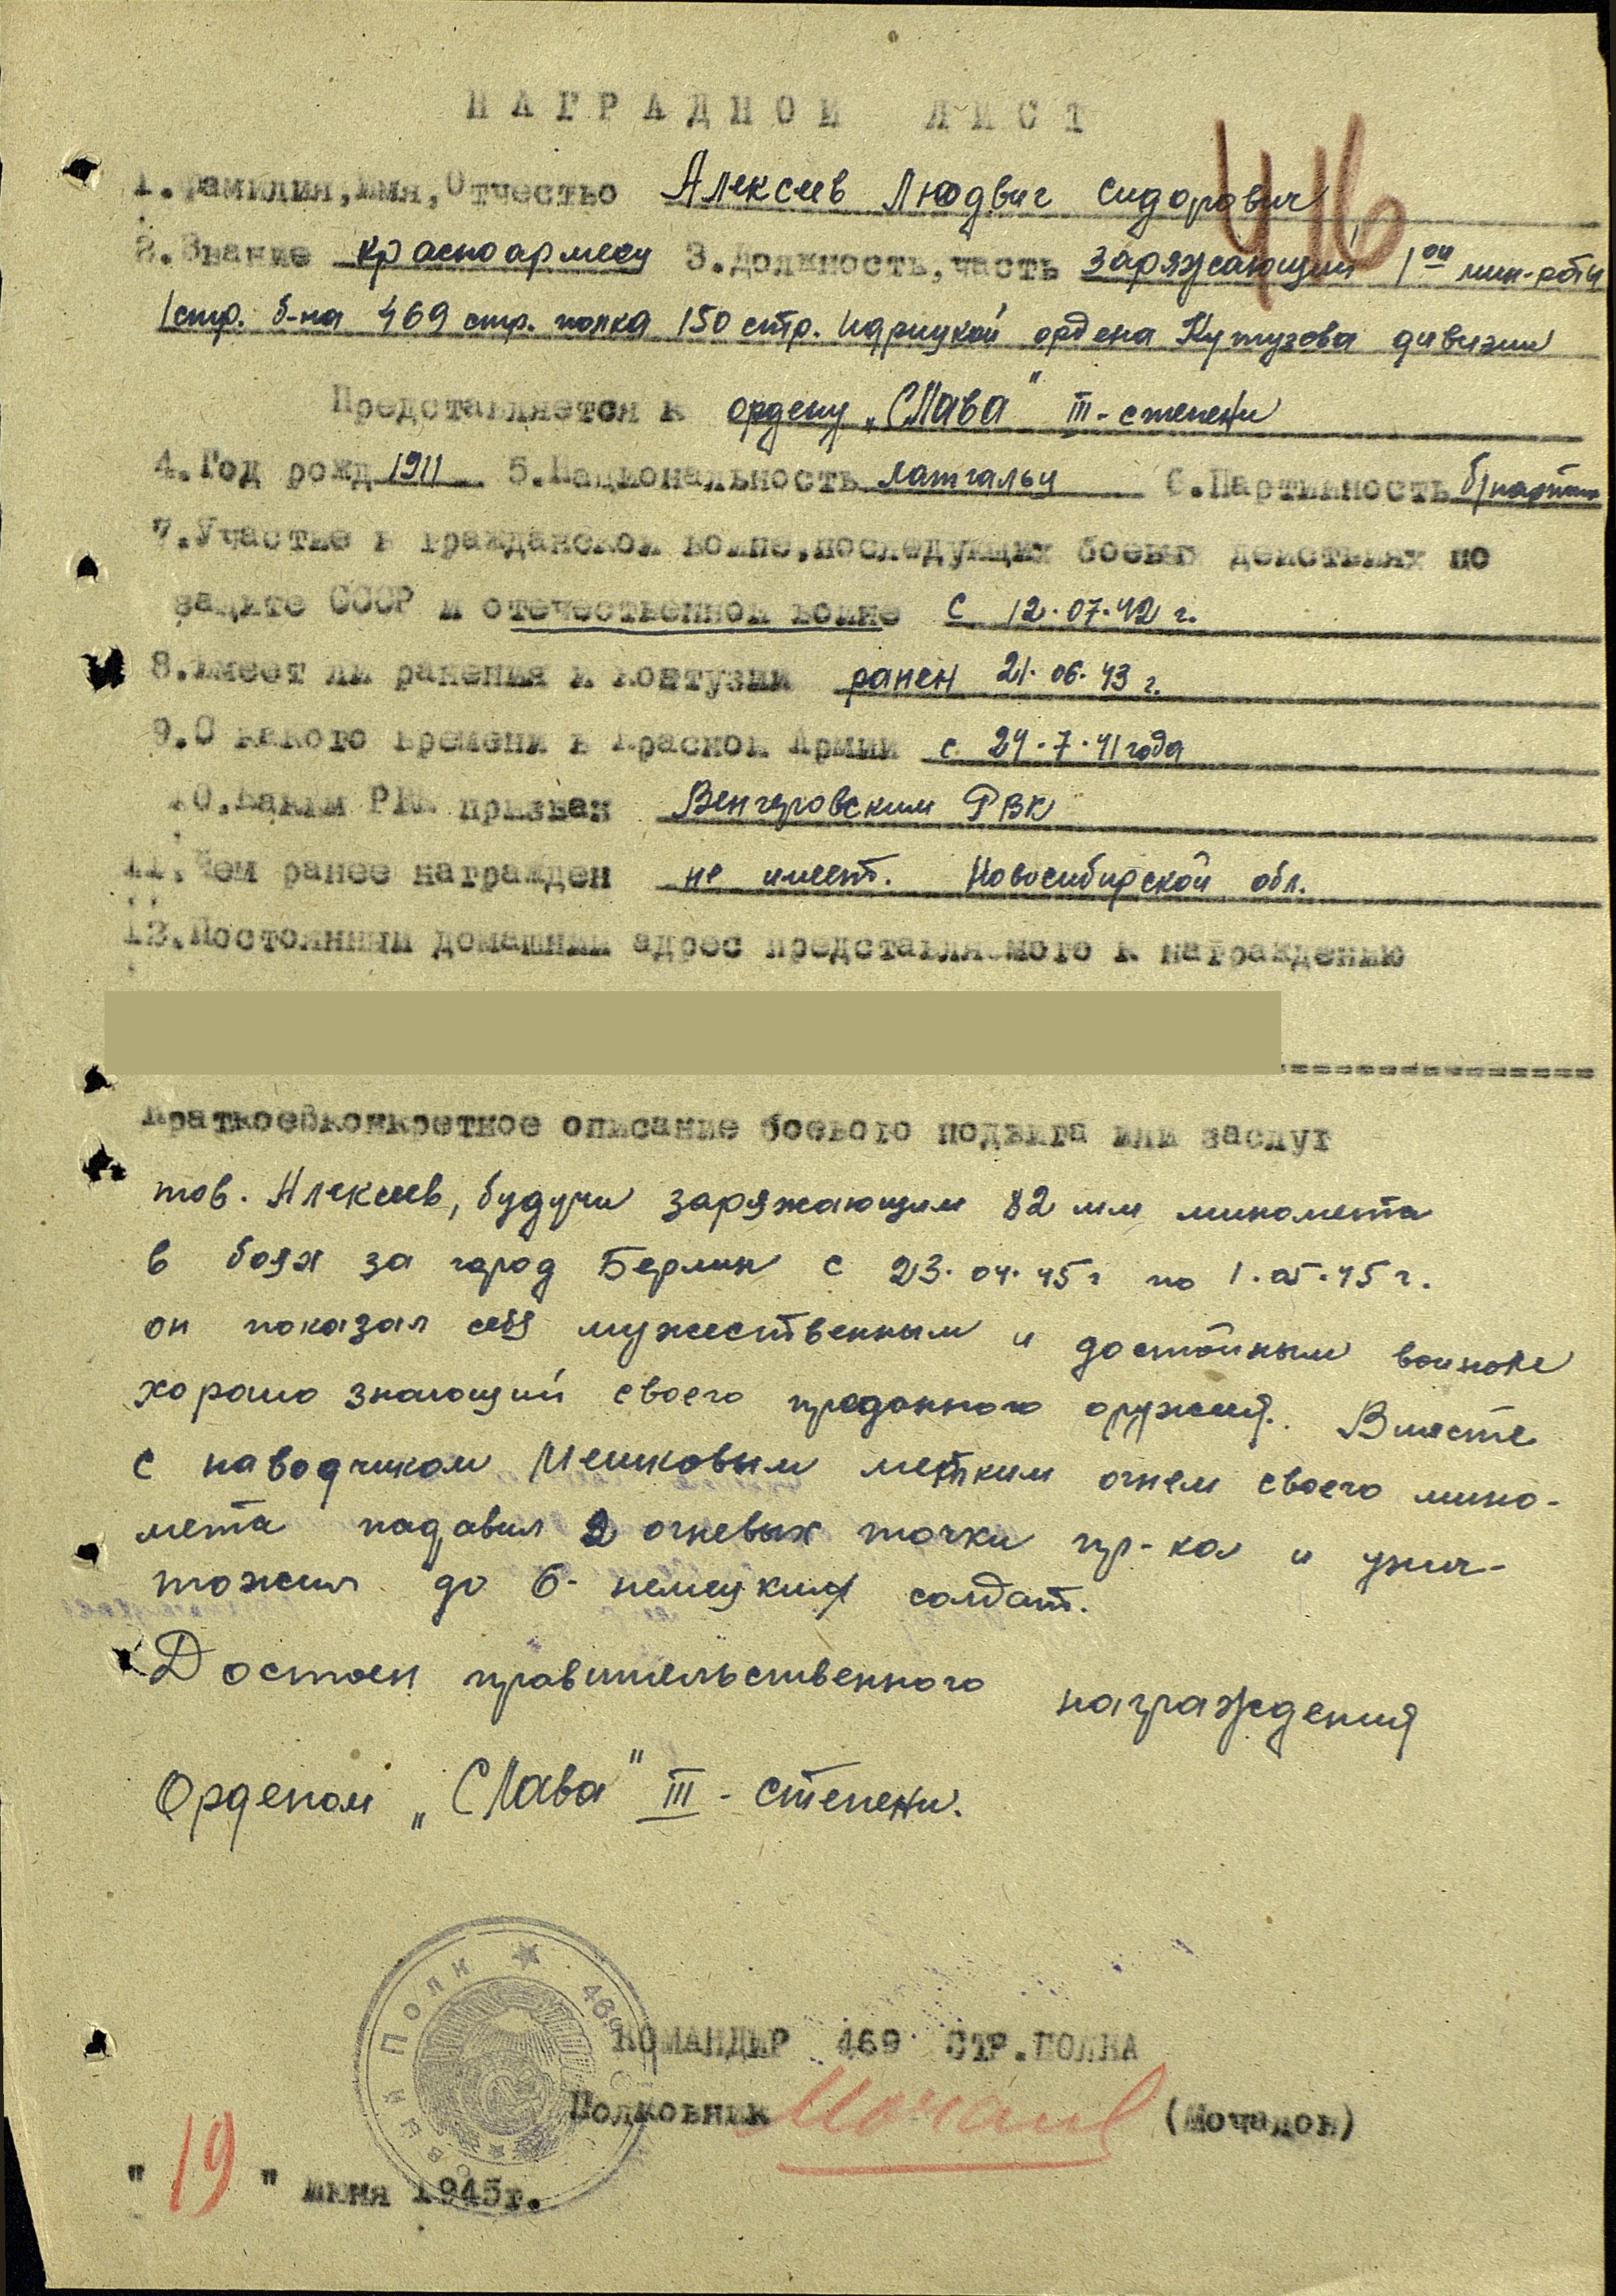 НАГРАДНОЙ ЛИСТ
416
1.Фамилия,Имя,Отчество Алексеев Людвиг Сидорович
2.Звание красноармеец 3.Должность,часть заряжающий 1ой мин-роты
1 стр. б-на 469 стр. полка 150 стр. Идрицкой ордена Кутузова дивизии
Представляется к ордену „Слава" III-степени
4.Год рожд 1911 5.Национальность латгалец 6.Партийность б/партии
7.Участие в гражданской войне,последующих боевых действиях по
защите СССР и отечественной войне с 12.07.42 г.
8.Имеет ли ранения и контузии ранен 21.06.43 г.
9.С какого времени в Красной Армии с 24.7.41 года
10.Каким РВК призван Венгеровским РВК
11.Чем ранее награжден не имеет. Новосибирской обл.
12.Постоянный домашний адрес представляемого к награждению
Краткое конкретное описание боевого подвига или заслуг
тов. Алексеев, будучи заряжающим 82 мм миномета
в боях за город Берлин с 23.04.45 г по 1.05.45 г.
он показал себя мужественным и достойным воином
хорошо знающий своего преданного оружия. Вместе
с наводчиком Мешковым метким огнем своего мино-
мета падавил 2 огневых точки пр-ка и унич-
тожил до 6- немецких солдат.
Достоен правительственного награждения
Орденом „Слава" III - степени.
КОМАНДИР 469 СТР.ПОЛКА
Полковник Мочалов (Мочалов)
"19" июня 1945г.